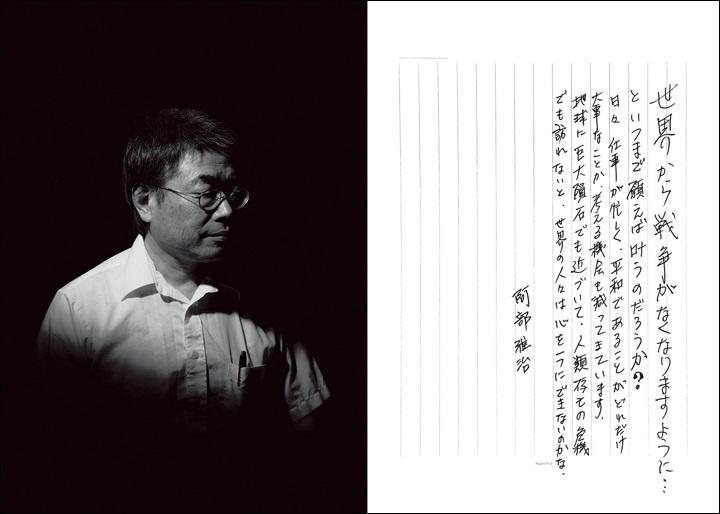 世界から戦争がなくなりますように…
といつまで願えば叶うのだろうか?
日々、仕事が忙しく、平和であることがどれだけ
大事なことか、考える機会も減ってきています。
地球に巨大隕石でも近づいて、人類存亡の危機
でも訪れないと、世界の人々は心を一つにできないのかな。
阿部雅治